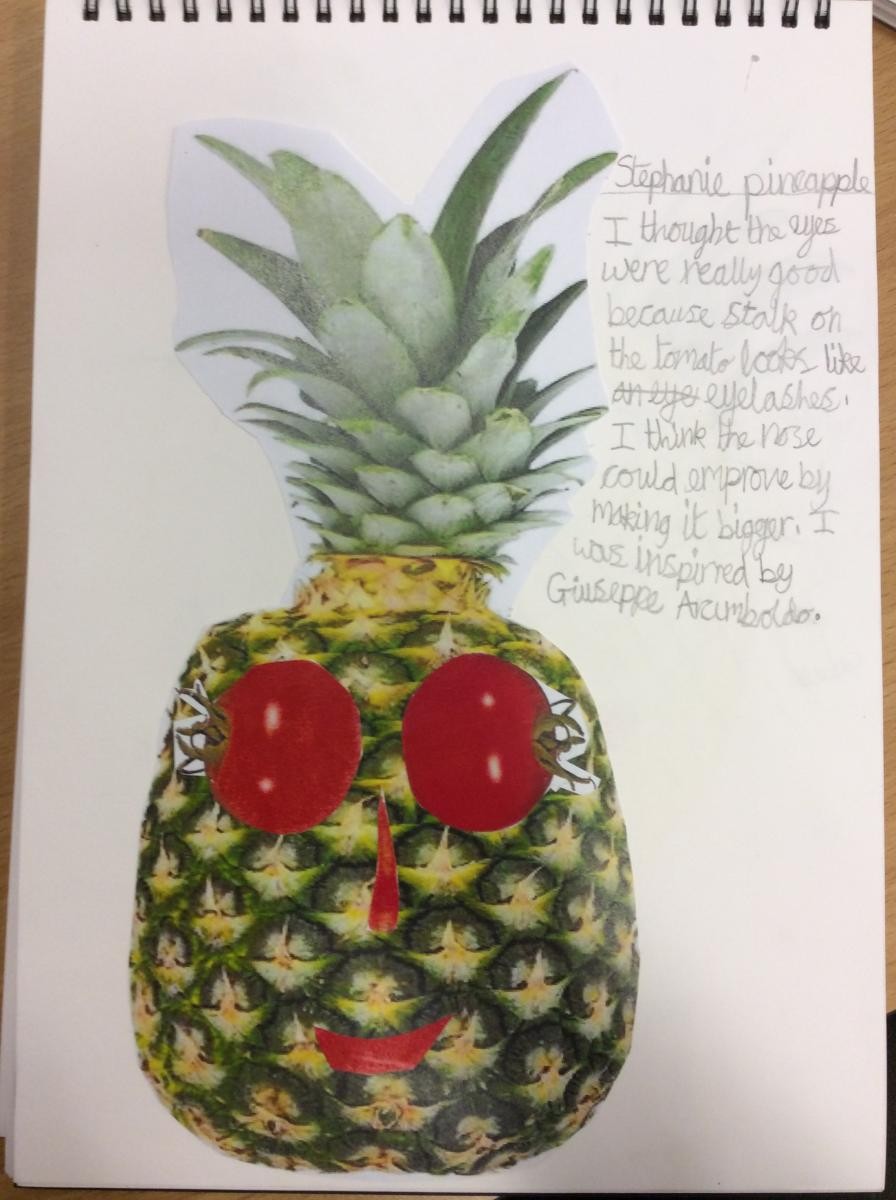 Stephanie pineapple
I thought the eyes
were really good
because stalk on
the tomato looks like
an eye eyelashes.
I think the nose
could emprove by
making it bigger. I
was inspirred by
Giuseppe Arcimboldo.